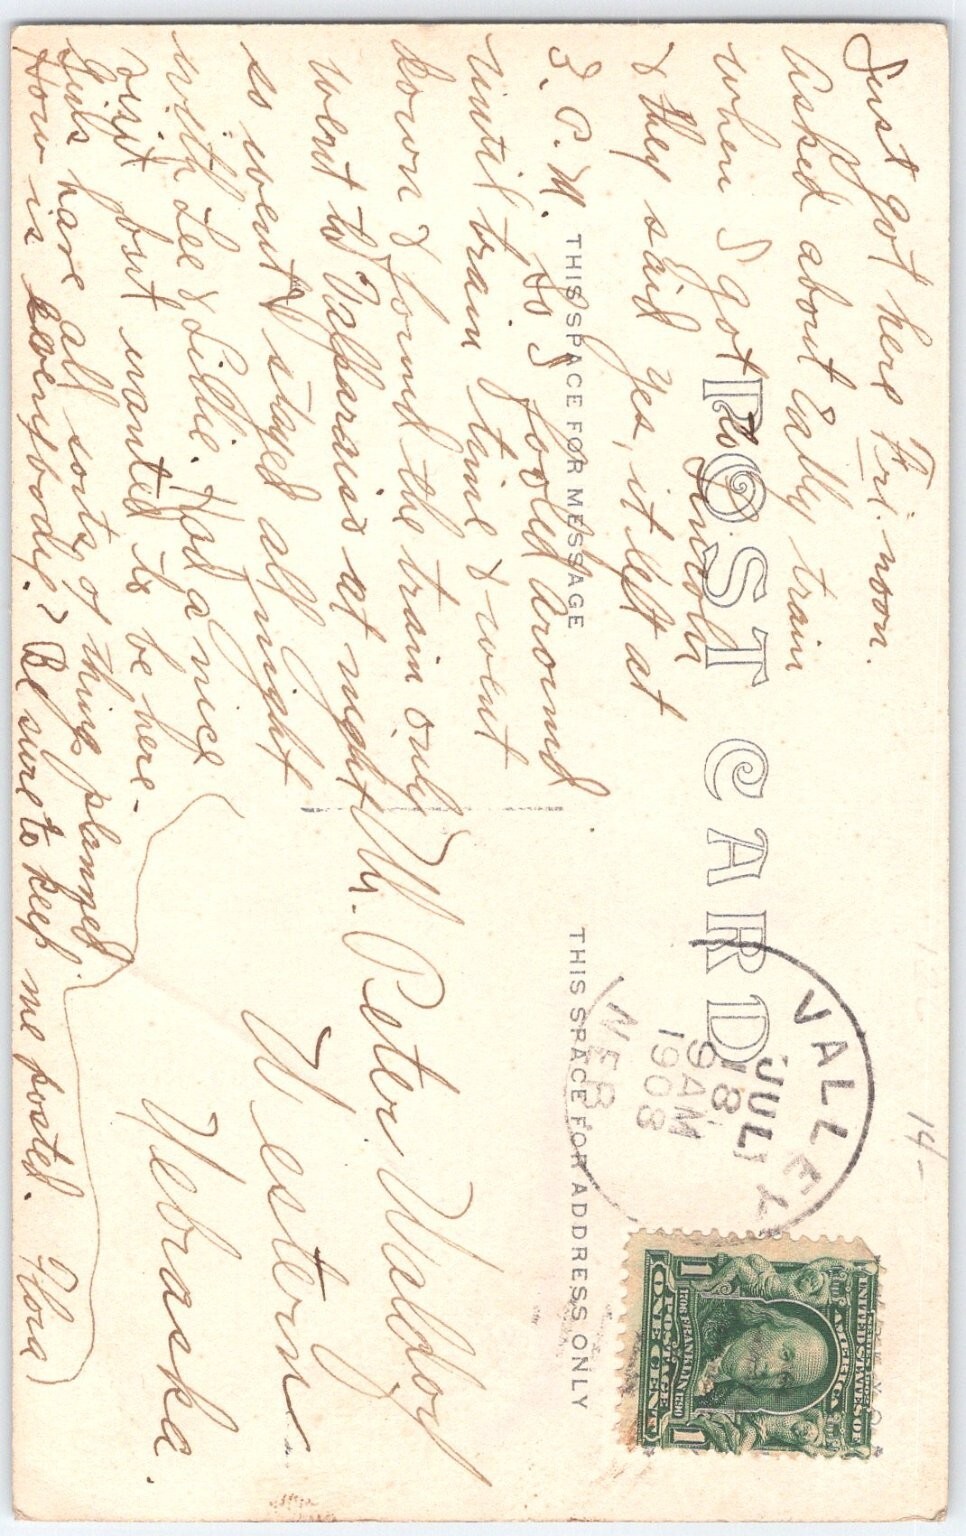 POST CARD
THIS SPACE FOR MESSAGE
THIS SPACE FOR ADDRESS ONLY
VALLEY
JUL
8
9 AM
1908
NEB.
UNITED STATES OF
AMERICA
FRANKLIN
POSTAGE
1 ONE CENT 1
14-
Just got here Fri. noon.
Asked about early train
when I got to Lincoln
& they said yes, it left at
P.M. So I fooled around
until train time & went
down & found the train only
went to Valparaiso at night
so went & stayed all night
with Lee & Lillie. Had a nice
visit but wanted to be here-
Girls have all sorts of things planned.
How is everybody? Be sure to keep me posted. Flora
Mr. Peter Waldorf
Western
Nebraska.